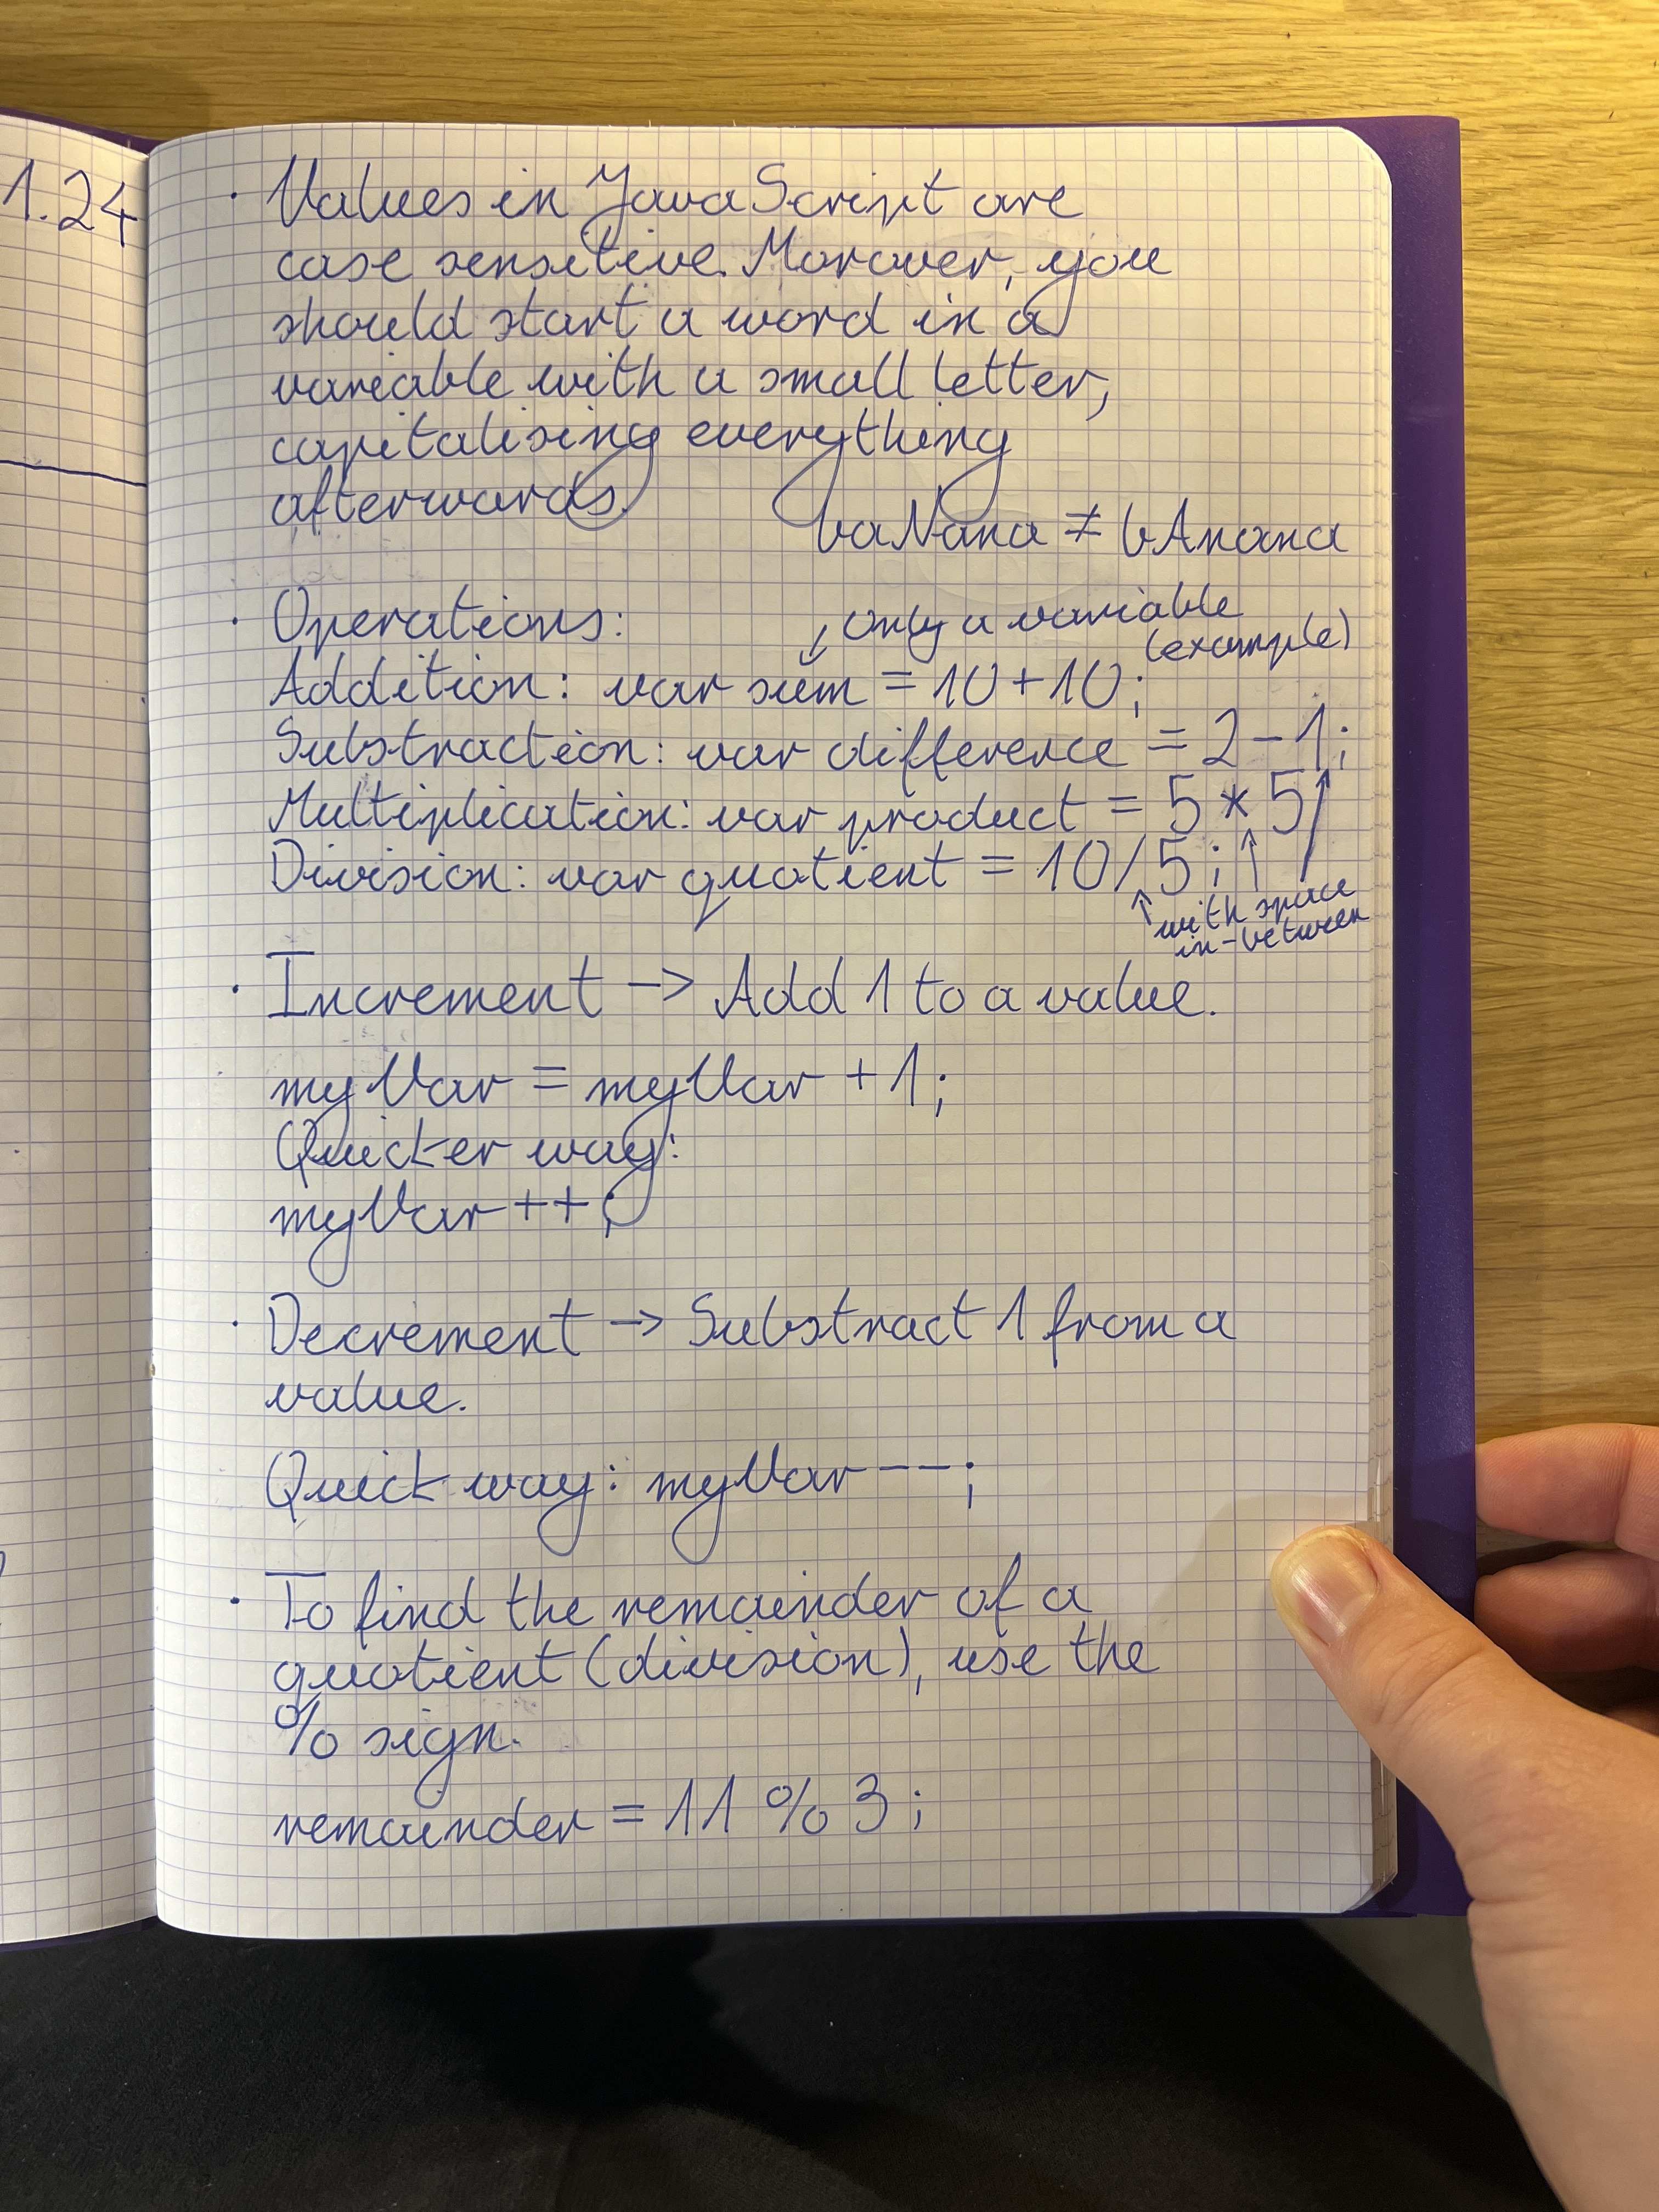 1.24
· Values in JavaScript are
case sensitive. Morover, you
should start a word in a
variable with a small letter,
capitalising everything
afterwards.
baNana ≠ bAnana
· Operations:
↓ only a variable
(example)
Addition: var sum = 10+10;
Substraction: var difference = 2-1;
Multiplication: var product = 5 * 5
Division: var quotient = 10/5;
with space
in-between
· Increment -> Add 1 to a value.
myVar = myVar +1;
Quicker way:
myVar++;
· Decrement -> Substract 1 from a
value.
Quick way: myVar--;
· To find the remainder of a
quotient (division), use the
% sign.
remainder = 11 % 3;